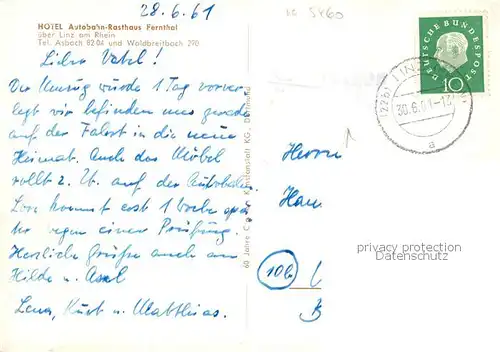 28.6.61
LC 5460
HOTEL Autobahn-Rasthaus Fernthal
über Linz am Rhein
Tel. Asbach 82 04 und Waldbreitbach 290
Lieber Vatel!
Der Umzug wurde 1 Tag vorver
legt wir befinden uns gerade
auf der Fahrt in die neue
Heimat. Auch das Möbel
rollt z. Zt. auf der Autobahn.
kommt erst 1 Woche
wegen einer Prüfung.
Herzliche Grüße auch an
Hilde u. Axel
Lena, Kurt u. Matthias.
60 Jahre Kunstanstalt KG, Dortmund
DEUTSCHE BUNDESPOST
10
(22b) LINZ
30.6.61-12
a
Herrn
Han
10b
privacy protection
Datenschutz